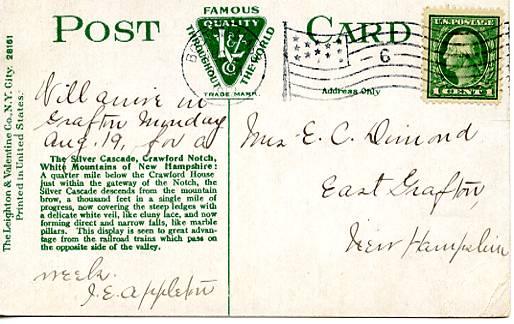 POST CARD
FAMOUS
QUALITY
THROUGHOUT THE WORLD
TRADE MARK.
6
U.S. POSTAGE
1 CENT 1
Address Only
The Leighton & Valentine Co., N.Y. City. 28161
Printed in United States.
Will arrive in
Grafton Monday
Aug. 19, for a
The Silver Cascade, Crawford Notch,
White Mountains of New Hampshire:
A quarter mile below the Crawford House
just within the gateway of the Notch, the
Silver Cascade descends from the mountain
brow, a thousand feet in a single mile of
progress, now covering the steep ledges with
a delicate white veil, like cluny lace, and now
forming direct and narrow falls, like marble
pillars. This display is seen to great advan-
tage from the railroad trains which pass on
the opposite side of the valley.
week.
J. E. Appleton
Mrs E. C. Dimond
East Grafton
New Hampshire